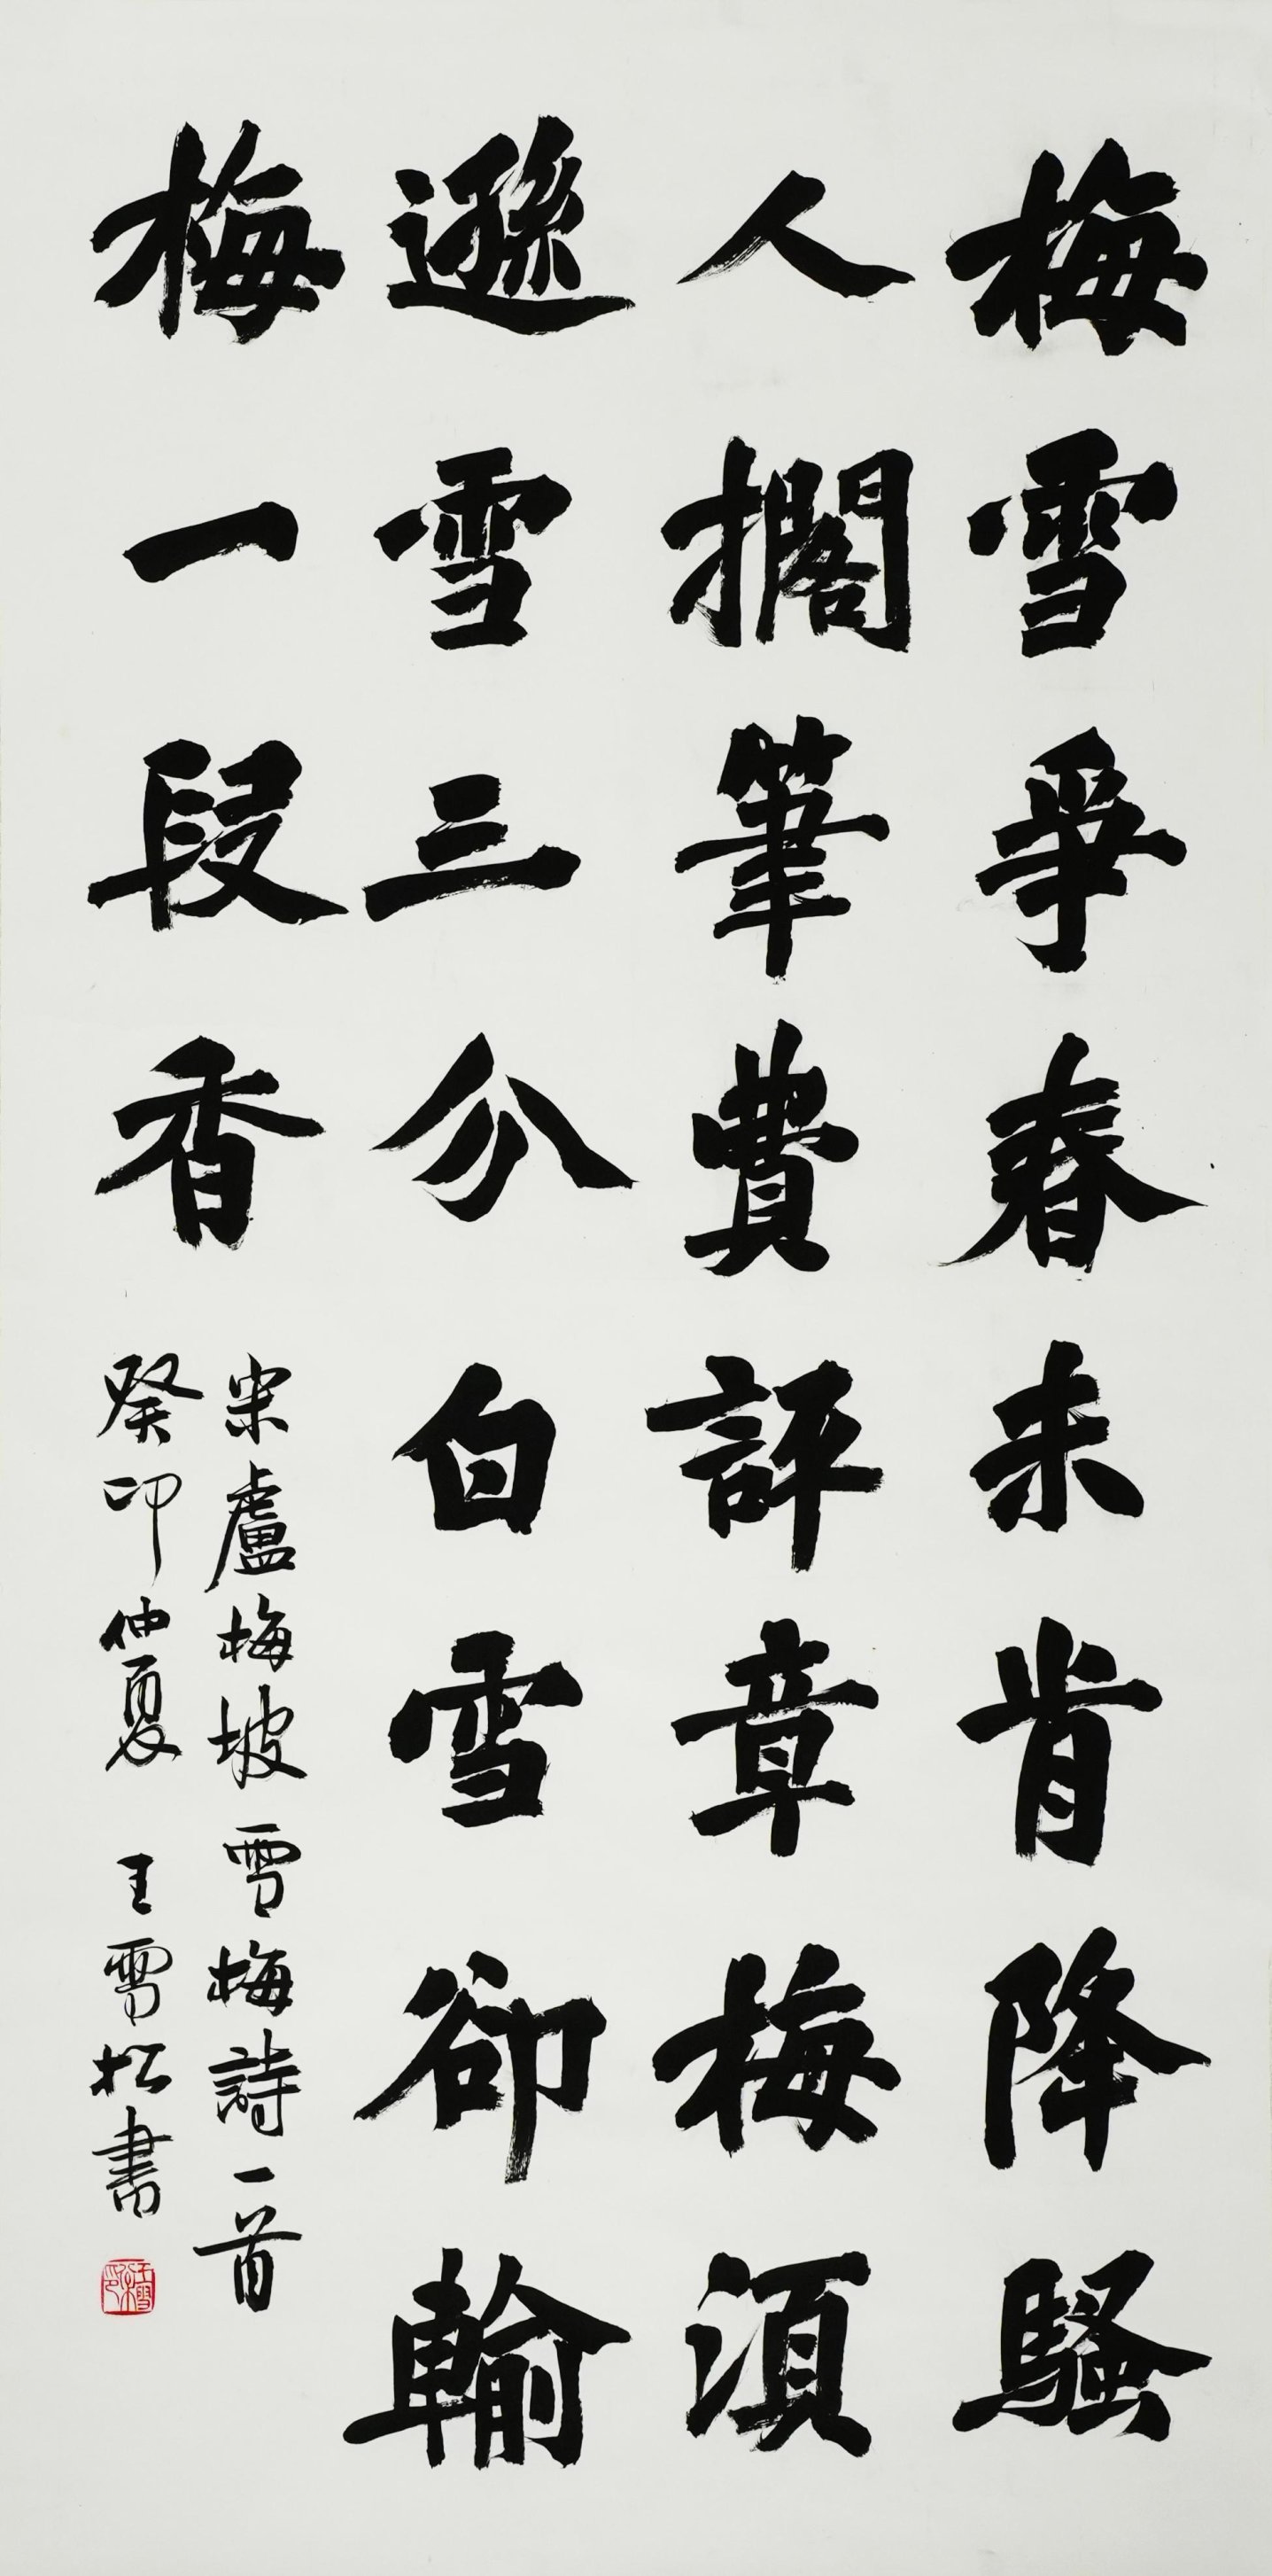 梅雪爭春未肯降騷
人擱筆費評章梅須
遜雪三分白雪卻輸
梅一段香
宋盧梅坡雪梅詩一首
癸卯仲夏 王雪松書